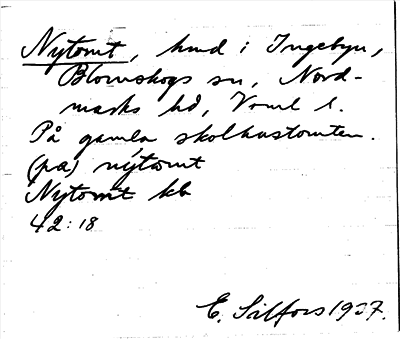 Nytomt, hmd i Ingebyn,
Blomskogs sn, Nord-
marks hd, Verml l.
På gamla skolhustomten.
(pa) nýtomt
Nytomt kb
42:18
E. Silfors 1937.